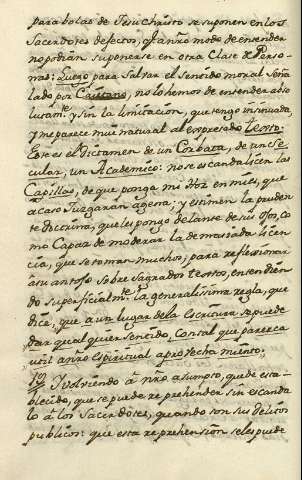 parabolas de Jesu Christo se suponen en los
Sacerdotes defectos, q̃ a nr̃o modo de entender
no podian suponerse en otra Clase de Perso-
nas: Luego para salvar el sentido moral seña-
lado por Cayetano, no lo hemos de entender abso-
lutam.te y sin la limitacion, que tengo insinuada,
y me parece mui natural al expresado texto.
Este es el Dictamen de un Corbata, de un Se-
cular, un Academico: no se escandalicen las
Capillas, de que ponga mi Hoz en mies, que
acaso Juzgaràn agena: y estimen la pruden-
te doctrina, que les pongo delante de sus ojos, co-
mo Capaz de moderar la demasiada licen-
cia, que se toman muchos, para reflexionar
à su antojo sobre sagrados textos, entendien-
do superficialm.te la generalissima regla, que
dice, que a un lugar de la Escritura se puede
dar qual quier sentido, con tal que parezca
util a nr̃o espiritual aprovechamiento.
19 Volviendo à nr̃o asumpto, quede esta-
blecido, que se puede reprehender sin escanda-
lo à los Sacerdotes, quando son sus delitos
publicos: que esta reprehension se les puede